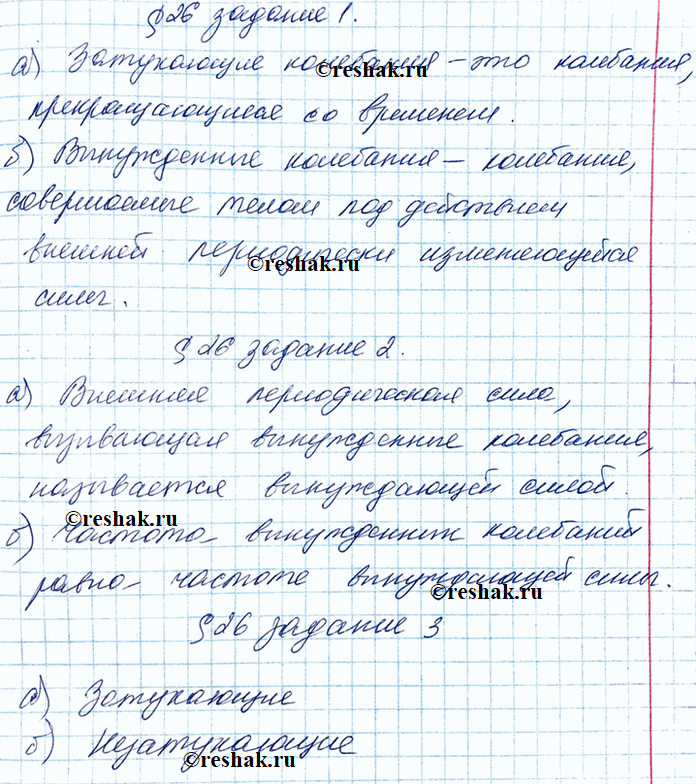 §26 задание 1.
а) Затухающие колебания – это колебания,
©reshak.ru
прекращающиеся со временем.
б) Вынужденные колебания – колебания,
совершаемые телом под действием
внешней периодически изменяющейся
©reshak.ru
силы.
§26 задание 2.
а) Внешняя периодическая сила,
вызывающая вынужденные колебания,
называется вынуждающей силой.
©reshak.ru
б) Частота вынужденных колебаний
равна частоте вынуждающей силы.
©reshak.ru
§26 задание 3
а) Затухающие
б) Незатухающие
©reshak.ru